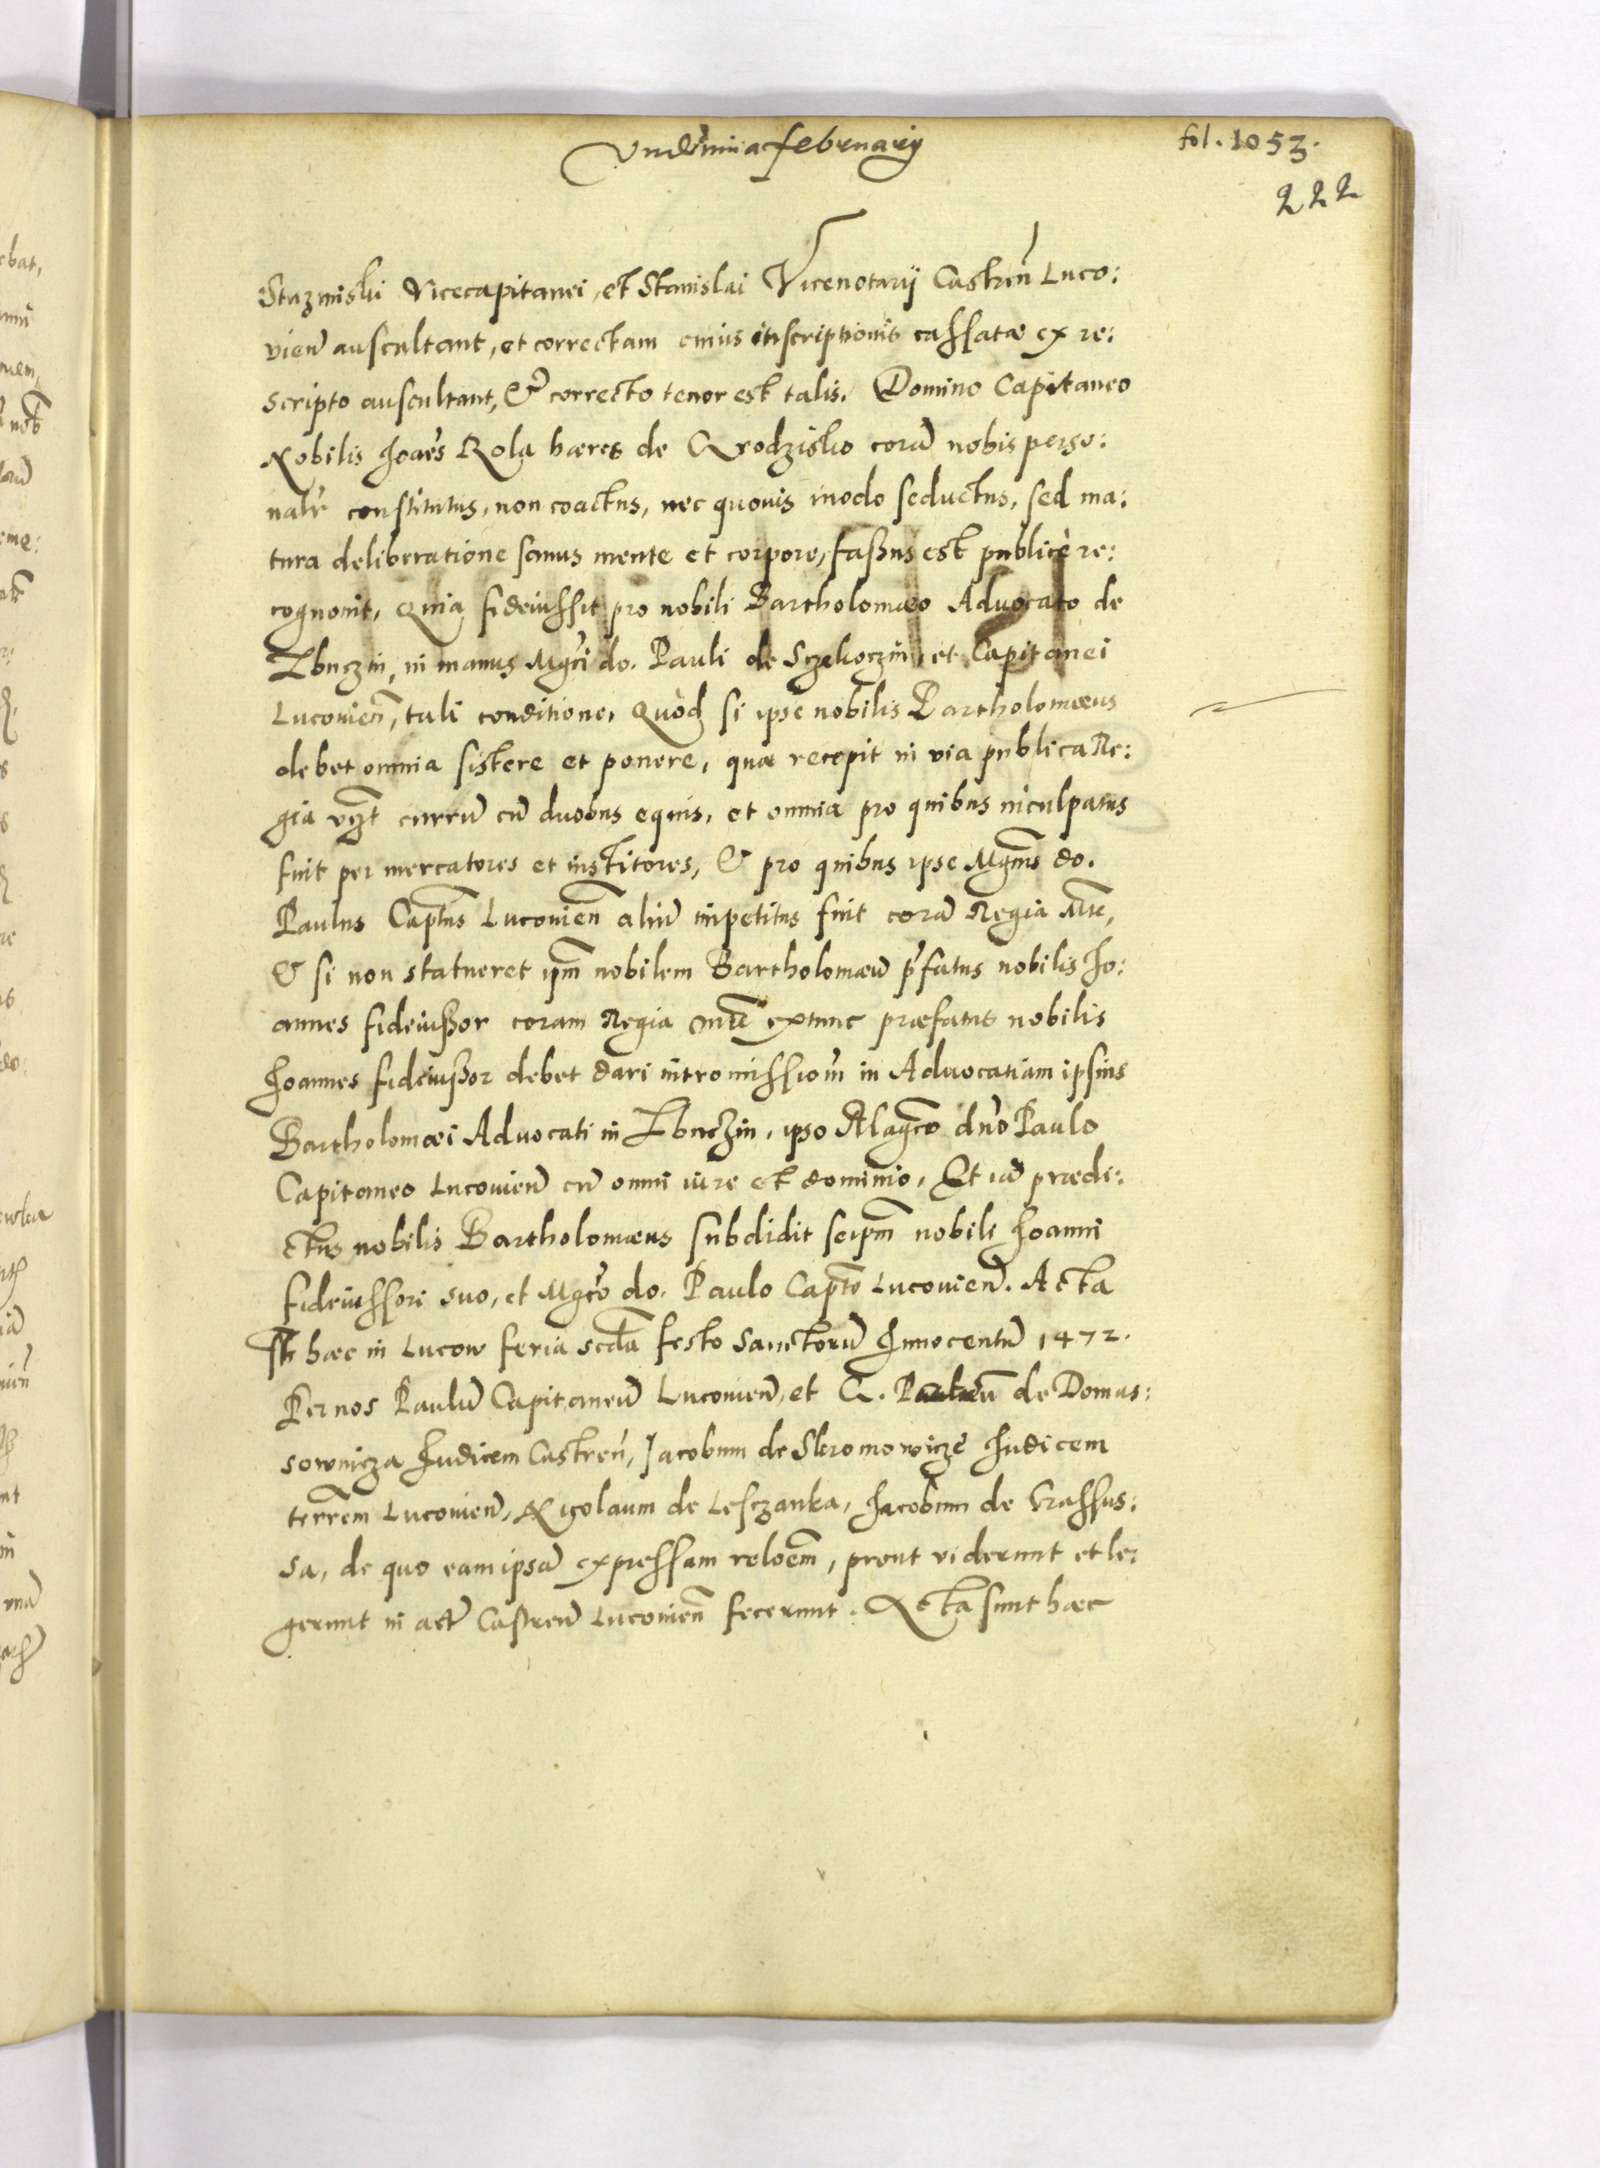 Vndecima february
fol. 1053.
222
Vicecapitanei, et Stanislai Vicenotarij Castreñ Luco:
vieñ auscultant, et correctam cuius inscriptionis cassatæ ex re:
scripto auscultant, & correcto tenor est talis. Domino Capitaneo
Nobilis Joães Rola hæres de Grodzisko corã nobis perso:
nalr constitutus, non coactus, nec quouis modo seductus, sed ma:
tura deliberatione sanus mente et corpore, faßus est publicè re:
cognouit, Quia fideiussit pro nobili Bartholomæo Aduocato de
Zbuczin, in manus Mgci do. Pauli de Sczekoczin, et Capitanei
Lucouieñ, tali conditione, Quòd si ipse nobilis Bartholomæus
debet omnia sistere et ponere, quæ recepit in via publica Re:
gia vzt currũ cũ duobus equis, et omnia pro quibus inculpatus
fuit per mercatores et institores, & pro quibus ipse Mgcus do.
Paulus Captus Lucouieñ aliũ inpetitus fuit corã Regia Mte,
& si non statueret ipm nobilem Bartholomæũ p̃fatus nobilis Jo:
annes fideiußor coram Regia Mte extunc præfatus nobilis
Joannes fideiußor debet dari intromissiom̃ in Aduocatiam ipsius
Bartholomæi Aduocati in Zbuczin, ipso Magco dno Paulo
Capitaneo Lucouieñ cũ omni iure et dominio, Et iã prædi:
ctus nobilis Bartholomæus subdidit seipm nobili Joanni
fideiussori suo, et Mgco do. Paulo Capto Lucouieñ. Acta
st hæc in Lucow feria scda festo Sanctorũ Innocentũ 1472.
Per nos Paulũ Capitaneũ Lucouieñ, et G. de Domas:
sownicza Judicem Castreñ, Jacobum de Skromowicze Judicem
terrem Lucouieñ, Nicolaum de Lesczanka, Jacobum de Vrassus:
sa, de quo eam ipsã expressam reloem, prout viderunt et le:
gerunt in act Castreñ Lucouieñ fecerunt. Acta sunt hæc